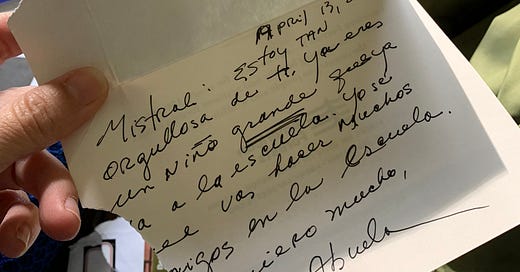 April 13, 2
Mistral: Estoy TAN,
orgullosa de ti. Ya eres
un niño grande que ya
a la escuela. Yo sé
vas hacer muchos
migos en la escuela.
quiero mucho,
Abuela